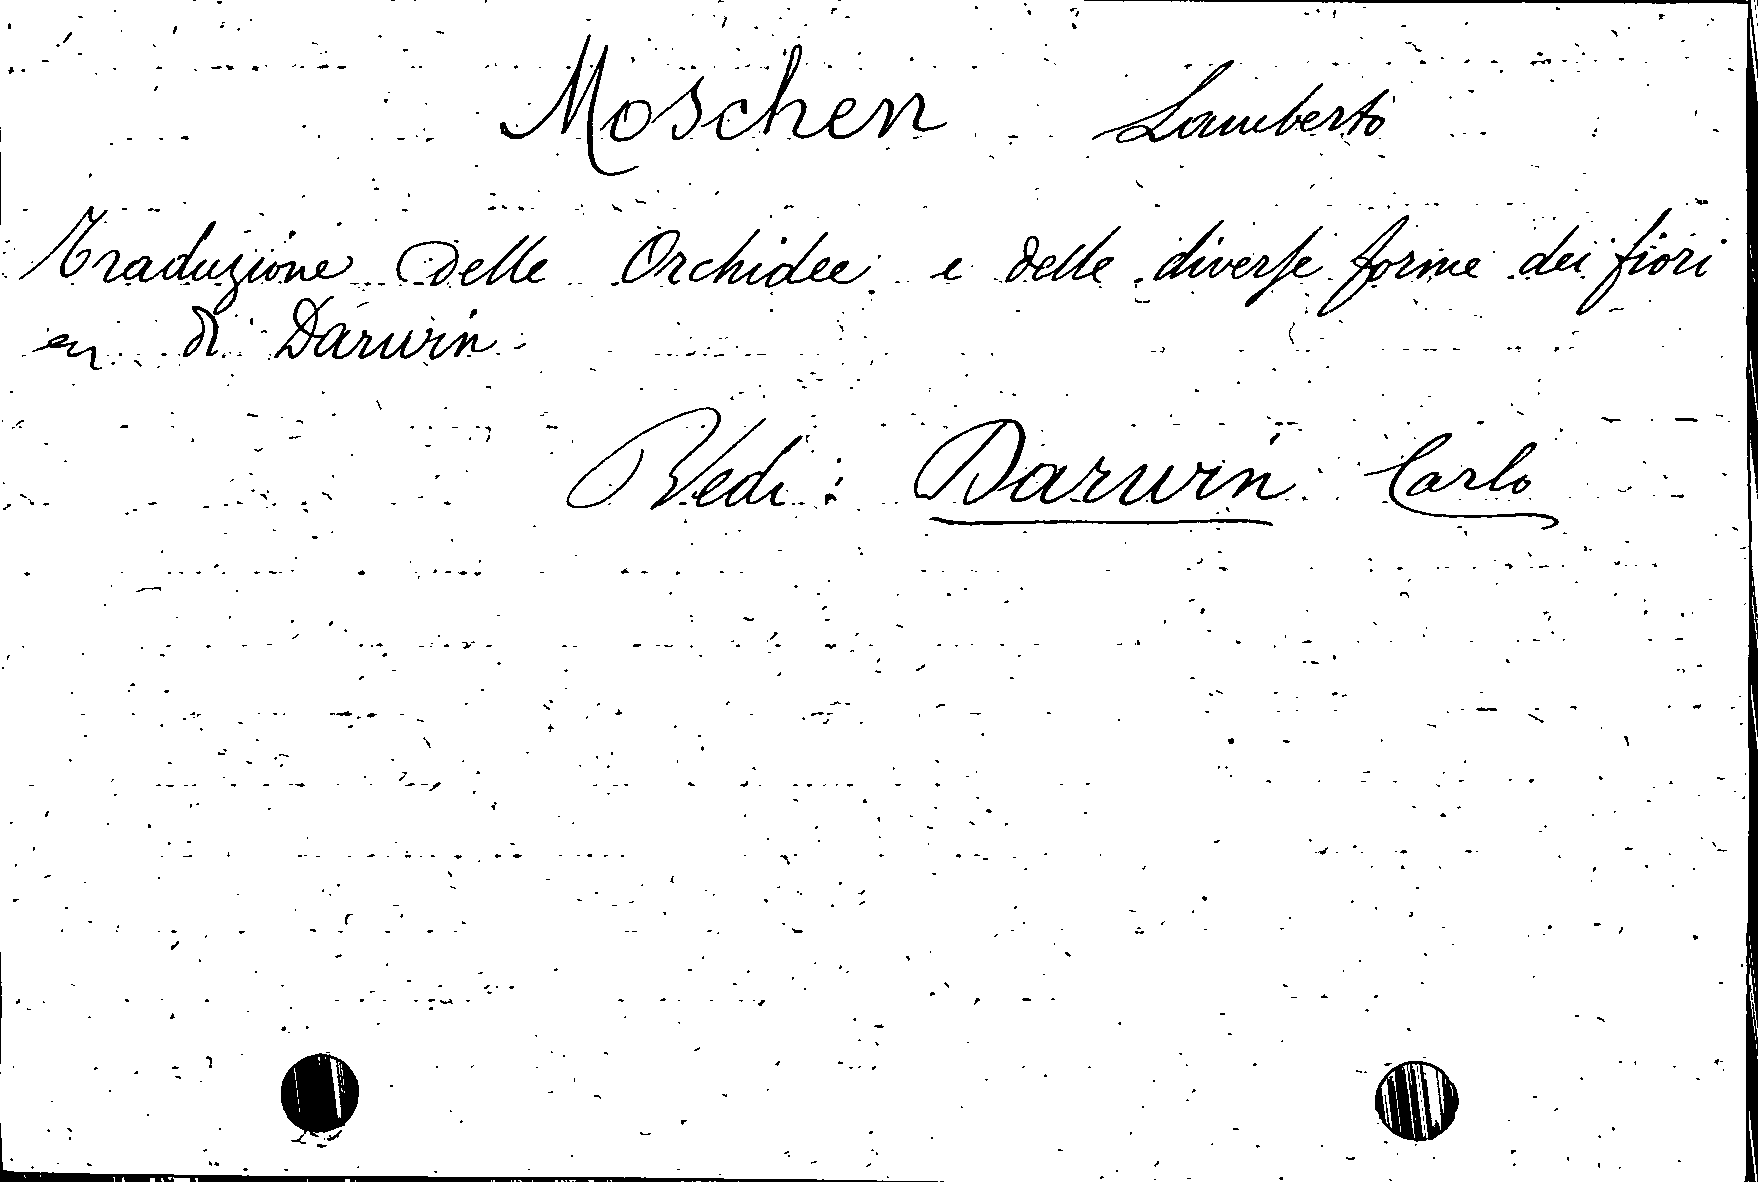 Moschen Lamberto
Traduzione delle Orchidee e delle diverse forme dei fiori
di Darwin
Vedi: Darwin Carlo